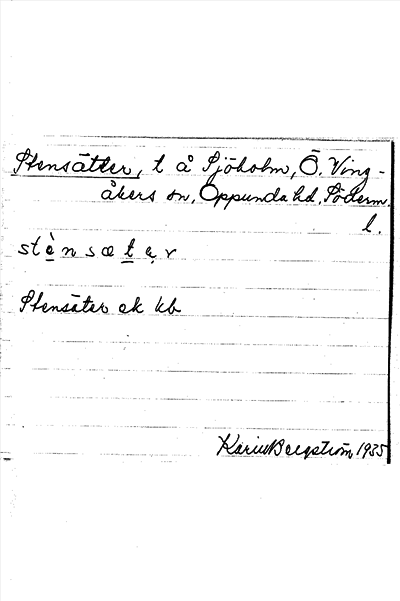 Stensätter, t å Sjöholm, Ö. Ving-
åkers sn, Oppunda hd, Söderm.
l.
stènsætẹr
Stensäter ek kb
Karin Bergström 1935